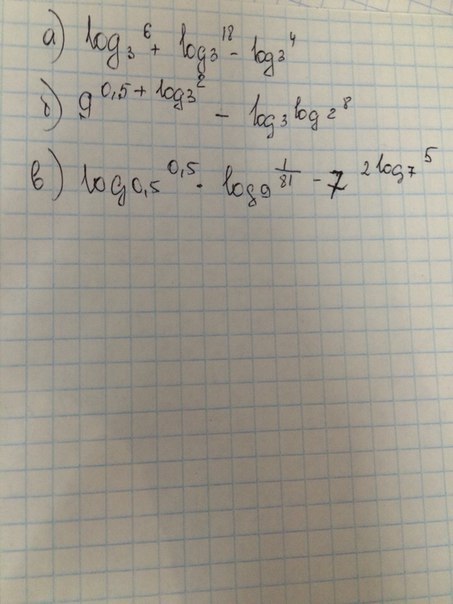 а) log₃6 + log₃18 - log₃4
б) 9^(0,5 + log₃2) - log₃log₂8
в) log₀,₅0,5 · log₉1/81 - 7^(2log₇5)